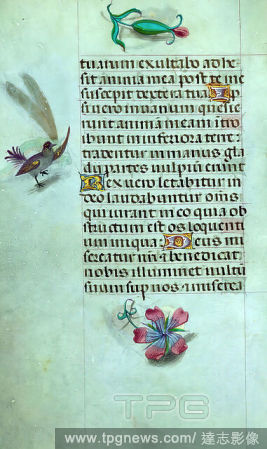 tuarum exultabo adhe
sit anima mea post te me
suscepit dextera tua Ip
si vero in vanum quesie
runt animam meam itro
ibunt in inferiora terre:
tradentur in manus gla
dij partes vulpiū erunt
Rex vero letabitur in
deo laudabuntur om̄s
qui iurant in eo quia ob
structum est os loquentiū
iniqua. Deus mi
sereatur nr̄i & benedicat
nobis illuminet vultū
suum sup nos & miserea
TPG
www.tpgnews.com/ 達志影像